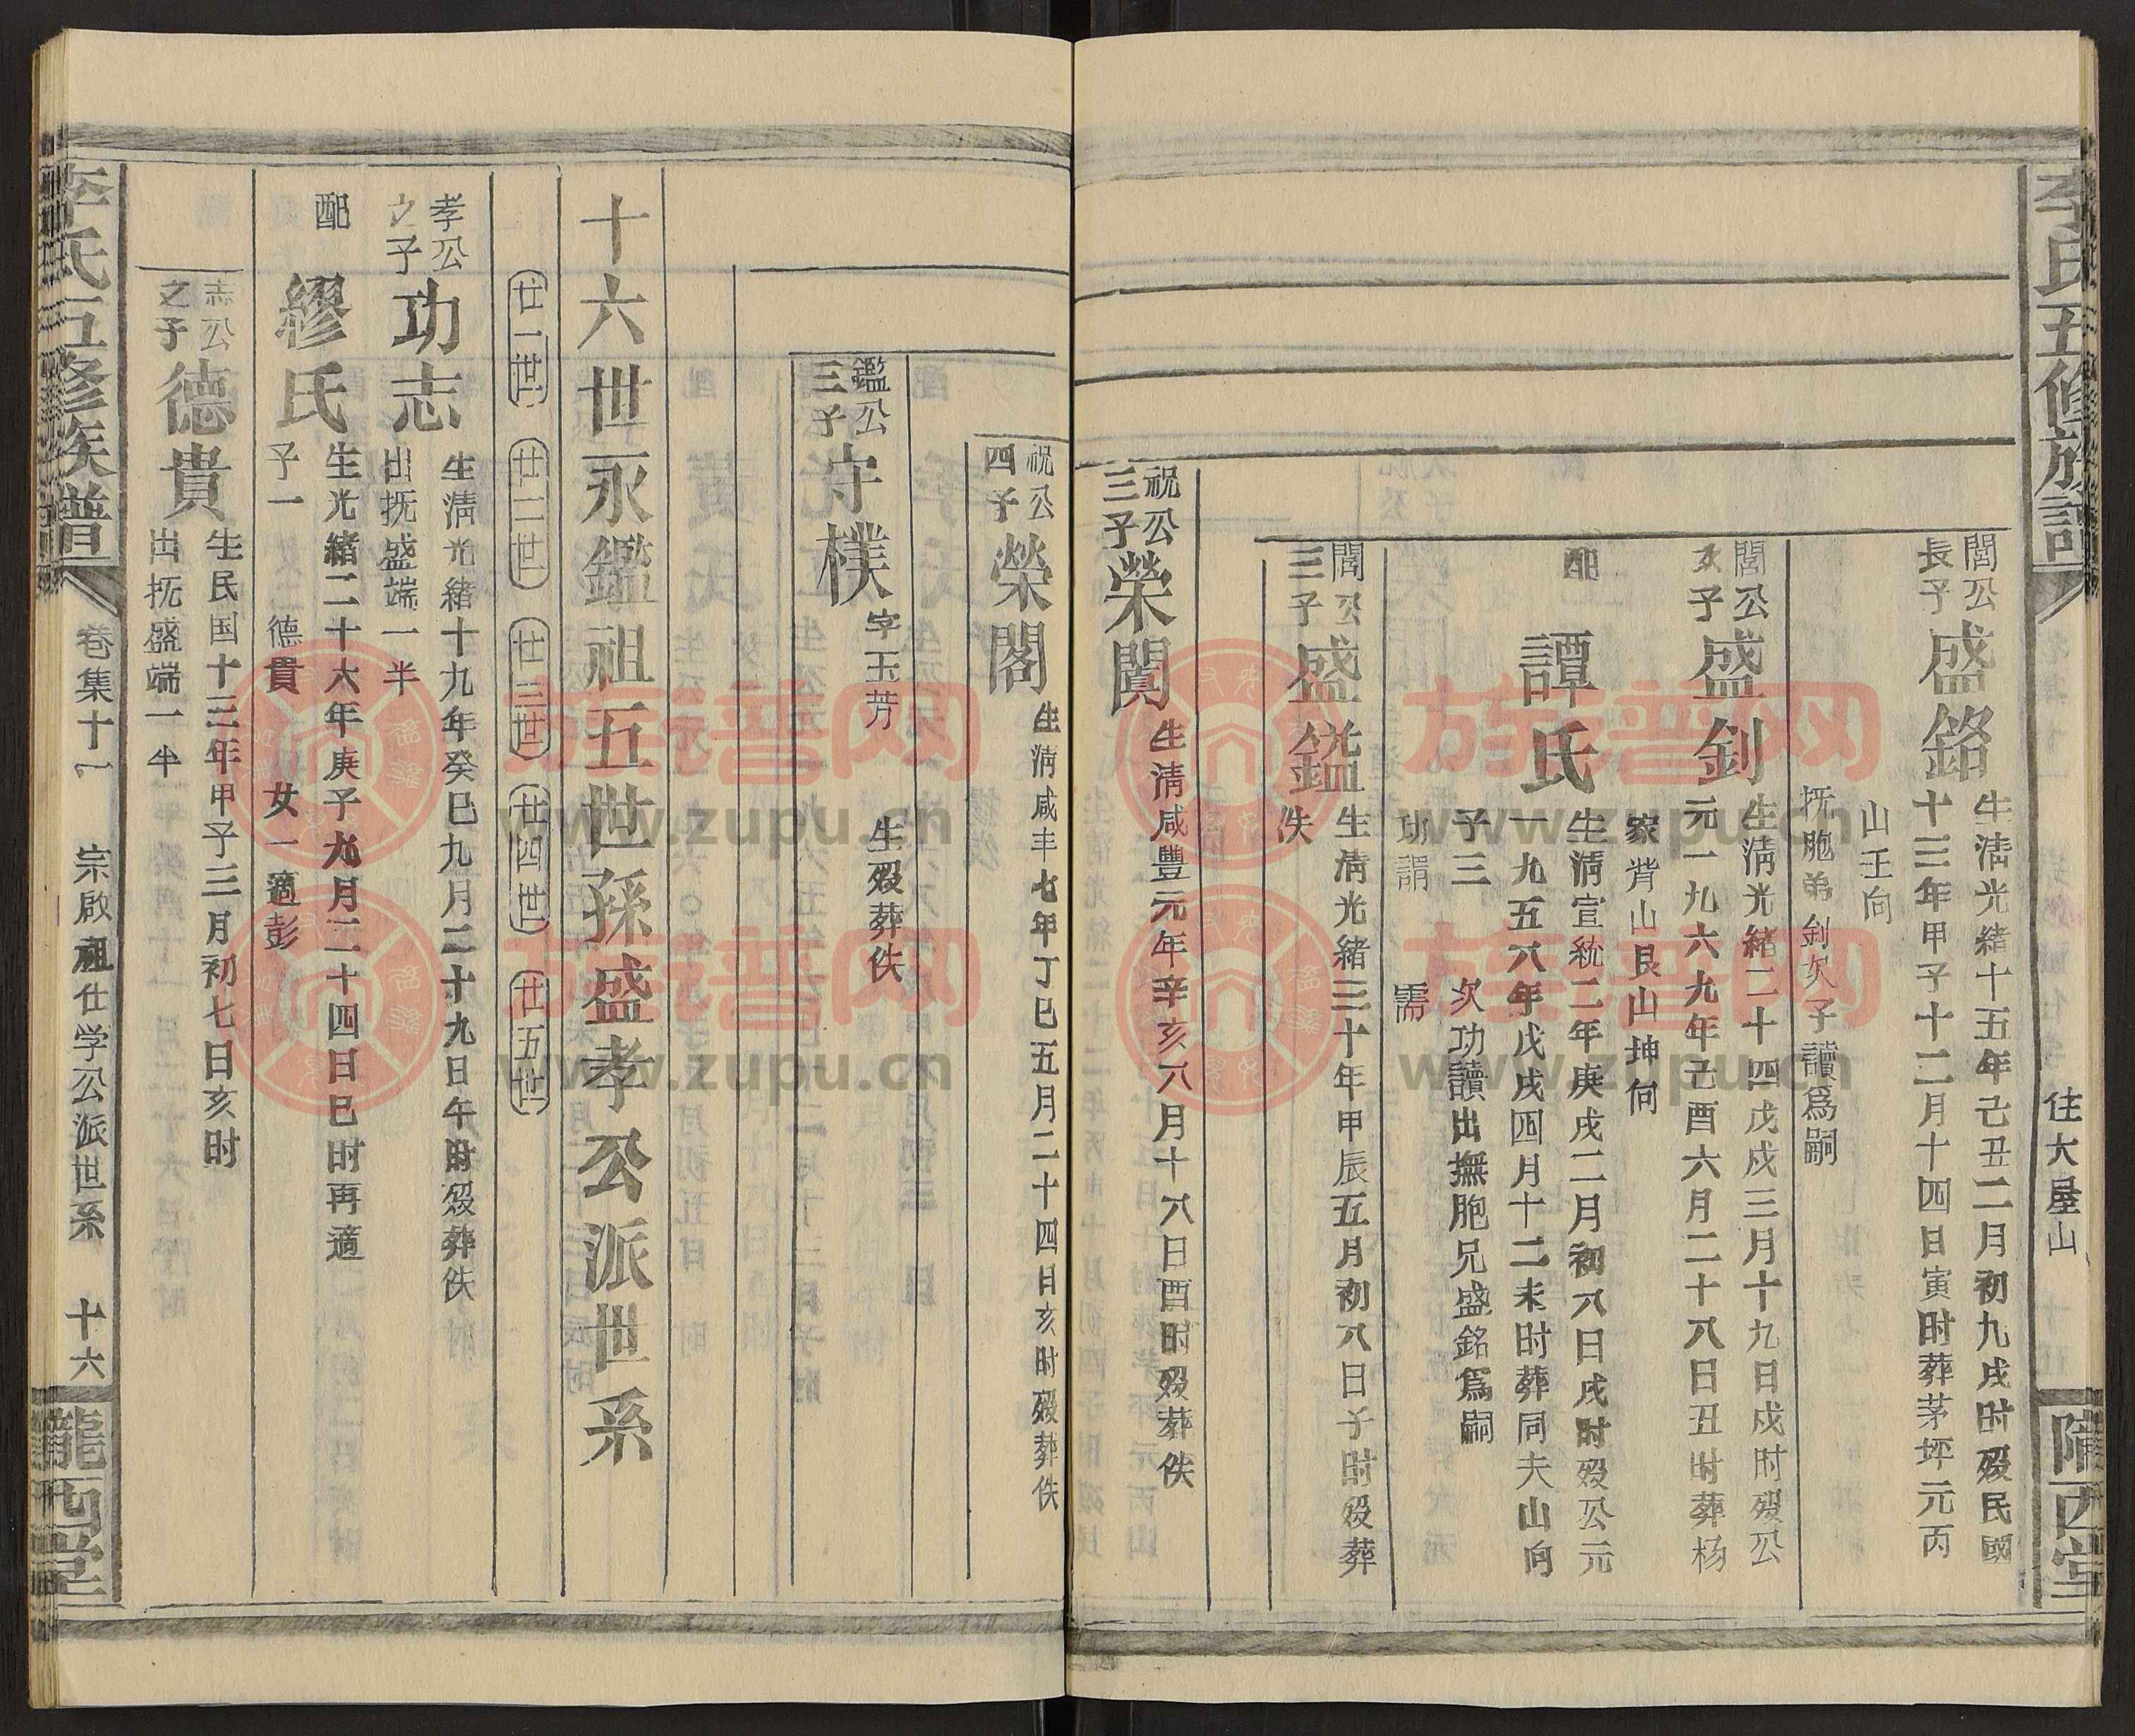 李氏五修族譜
住大屋山
隴西堂
閭公
長子
盛銘
生清光緒十五年己丑二月初九戌时殁民國
十三年甲子十二月十四日寅时葬茅坪元丙
山壬向
抚胞弟釗次子讀爲嗣
閭公
次子
盛釗
生清光緒二十四戊戌三月十九日戌时殁公
元一九六九年己酉六月二十八日丑时葬杨
家背山艮山坤向
配
譚氏
生清宣統二年庚戌二月初八日戌时殁公元
一九五八年戊戌四月十二未时葬同夫山向
子三 次功讀出撫胞兄盛銘爲嗣
功謂 需
閭公
三子
盛鎰
生清光緒三十年甲辰五月初八日子时殁葬
失
祝公
三子
榮闖
生清咸豐元年辛亥八月十八日酉时殁葬佚
祝公
四子
榮閣
生清咸丰七年丁巳五月二十四日亥时殁葬佚
鑑公
三子
守樸
字玉芳 生殁葬佚
十六世永鑑祖五世孫盛孝公派世系
廿一世 廿二世 廿三世 廿四世 廿五世
孝公
之子
功志
生清光緒十九年癸巳九月二十九日午时殁葬佚
出抚盛端一半
配
繆氏
生光緒二十六年庚子九月二十四日巳时再適
子一 德貴 女一適彭
志公
之子
德貴
生民国十三年甲子三月初七日亥时
出抚盛端一半
李氏五修族譜
卷集十一 宗啟祖仕学公派世系 十六
隴西堂
族谱网
www.zupu.cn
族谱网
www.zupu.cn
族谱网
www.zupu.cn
族谱网
www.zupu.cn